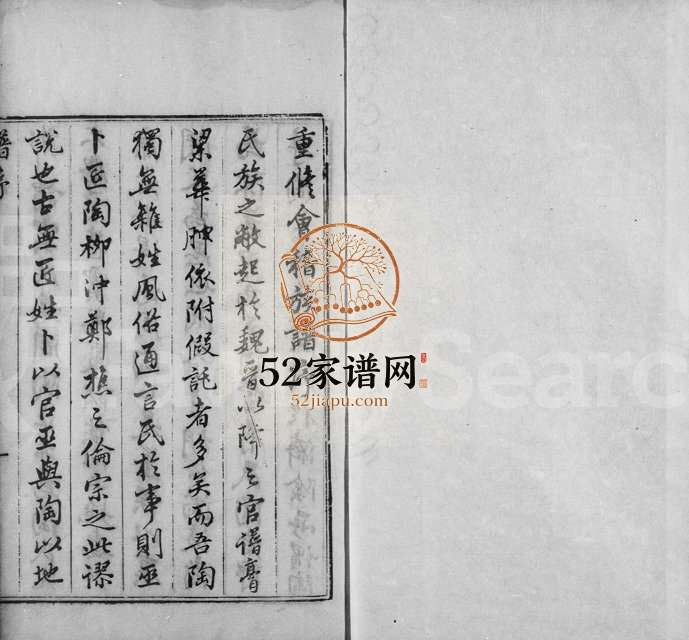 重修會稽族譜
氏族之敝起於魏晉以降之官譜膏
梁華胄依附假託者多矣而吾陶
獨無雜姓風俗通言氏於事則巫
卜匠陶柳沖鄭樵之倫宗之此謬
說也古無匠姓卜以官巫與陶以地
譜序
52家谱网
52jiapu.com